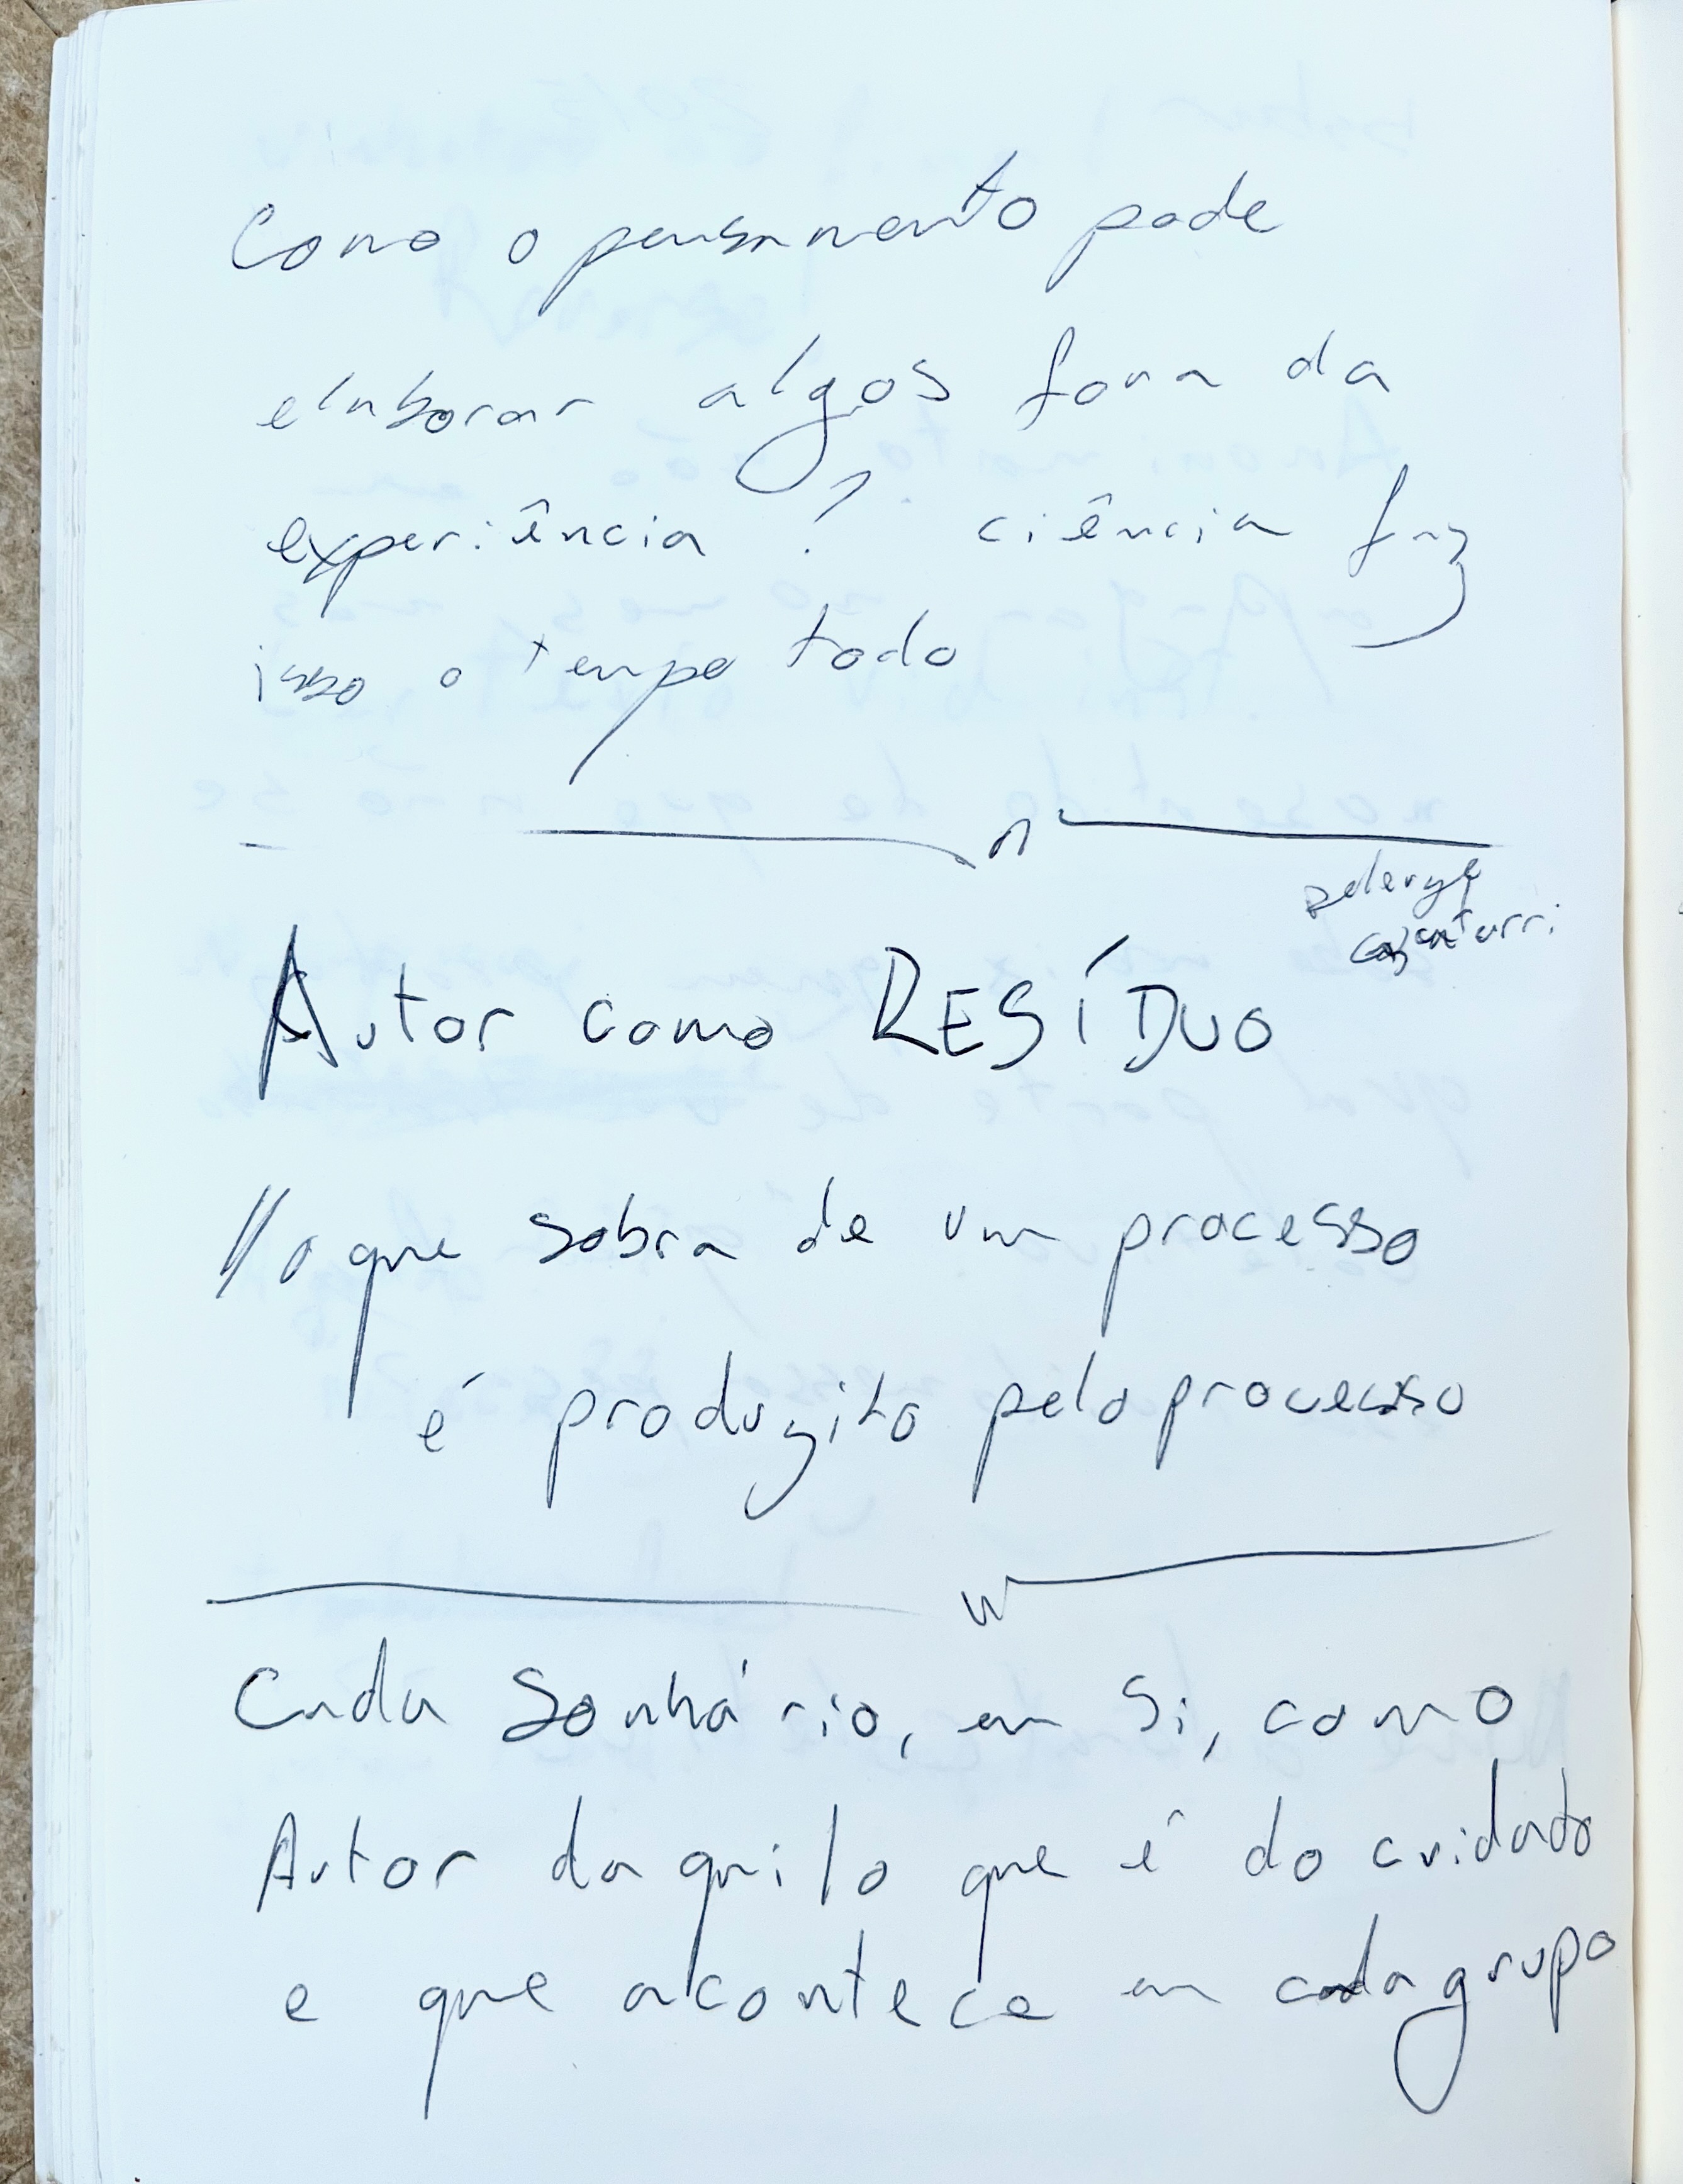 Como o pensamento pode
elaborar algos fora da
experiência? ciência faz
isso o tempo todo
Autor como RESÍDUO
// o que sobra de um processo
é produzito pelo processo
Cada Sonhário, em si, como
Autor daquilo que é do cuidado
e que acontece em cada grupo